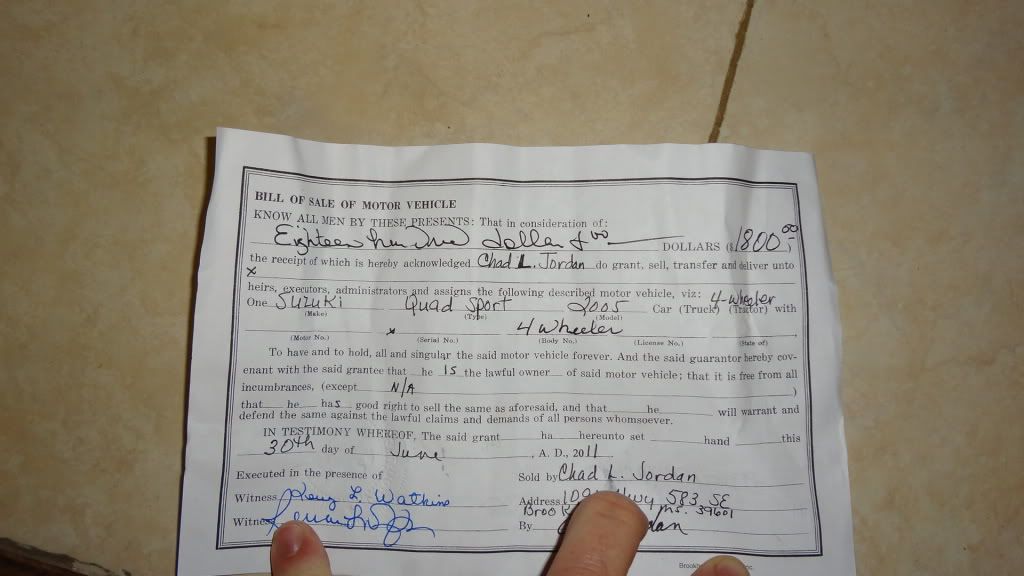 BILL OF SALE OF MOTOR VEHICLE
KNOW ALL MEN BY THESE PRESENTS: That in consideration of:
Eighteen dollar DOLLARS ($1800.00
the receipt of which is hereby acknowledged Chad L. Jordan do grant, sell, transfer and deliver unto
x
heirs, executors, administrators and assigns the following described motor vehicle, viz: 4-wheeler
One Suzuki Quad Sport 2005 Car (Truck) (Tractor) with
(Make) (Type) (Model)
x 4 wheeler
(Motor No.) (Serial No.) (Body No.) (License No.) (State of)
To have and to hold, all and singular the said motor vehicle forever. And the said guarantor hereby cov-
enant with the said grantee that he is the lawful owner of said motor vehicle; that it is free from all
incumbrances, (except N/A )
that he has good right to sell the same as aforesaid, and that he will warrant and
defend the same against the lawful claims and demands of all persons whomsoever.
IN TESTIMONY WHEREOF, The said grant ha hereunto set hand this
30th day of June , A. D., 2011
Executed in the presence of
Sold by Chad L. Jordan
Witness L. Watkins
Address Hwy 583 SE
Ms. 39601
Witness
By